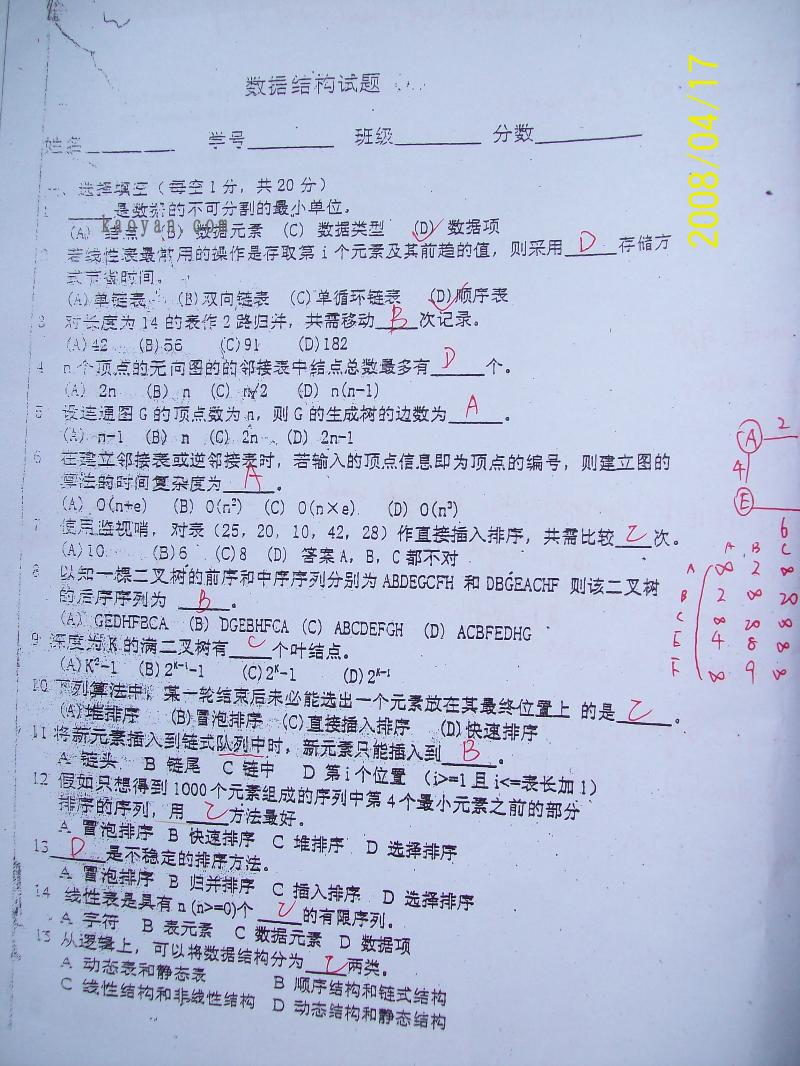 数据结构试题
姓名 学号 班级 分数
2008/04/17
一、选择填空(每空1分,共20分)
1 ____是数据的不可分割的最小单位。
kaoyan.com
(A) 结点 (B) 数据元素 (C) 数据类型 (D) 数据项
2 若线性表最常用的操作是存取第i个元素及其前趋的值,则采用 D 存储方
式节省时间。
(A)单链表 (B)双向链表 (C)单循环链表 (D)顺序表
3 对长度为14的表作2路归并,共需移动 B 次记录。
(A)42 (B)56 (C)91 (D)182
4 n个顶点的无向图的的邻接表中结点总数最多有 D 个。
(A) 2n (B) n (C) n/2 (D) n(n-1)
5 设连通图G的顶点数为n,则G的生成树的边数为 A 。
(A) n-1 (B) n (C) 2n (D) 2n-1
6 在建立邻接表或逆邻接表时,若输入的顶点信息即为顶点的编号,则建立图的
算法的时间复杂度为 A 。
(A) O(n+e) (B) O(n²) (C) O(n×e) (D) O(n³)
7 使用监视哨,对表(25,20,10,42,28)作直接插入排序,共需比较 C 次。
(A)10 (B)6 (C)8 (D) 答案A,B,C都不对
8 以知一棵二叉树的前序和中序序列分别为ABDEGCFH和DBGEACHF 则该二叉树
的后序序列为 B 。
(A) GEDHFBCA (B) DGEBHFCA (C) ABCDEFGH (D) ACBFEDHG
9 深度为K的满二叉树有 C 个叶结点。
(A)K²-1 (B)2ᴷ⁻¹-1 (C)2ᴷ-1 (D)2ᴷ⁻¹
10 下列算法中,某一轮结束后未必能选出一个元素放在其最终位置上 的是 C 。
(A)堆排序 (B)冒泡排序 (C)直接插入排序 (D)快速排序
11 将新元素插入到链式队列中时,新元素只能插入到 B 。
A 链头 B 链尾 C 链中 D 第i个位置 (i>=1且i<=表长加1)
12 假如只想得到1000个元素组成的序列中第4个最小元素之前的部分
排序的序列,用 C 方法最好。
A 冒泡排序 B 快速排序 C 堆排序 D 选择排序
13 D 是不稳定的排序方法。
A 冒泡排序 B 归并排序 C 插入排序 D 选择排序
14 线性表是具有n(n>=0)个 C 的有限序列。
A 字符 B 表元素 C 数据元素 D 数据项
15 从逻辑上,可以将数据结构分为 C 两类。
A 动态表和静态表 B 顺序结构和链式结构
C 线性结构和非线性结构 D 动态结构和静态结构
A 2
4
E
6
A B C
A ∞ 2 ∞
B 2 ∞ 20
C ∞ 20 ∞
E 4 8 ∞
F ∞ 9 ∞